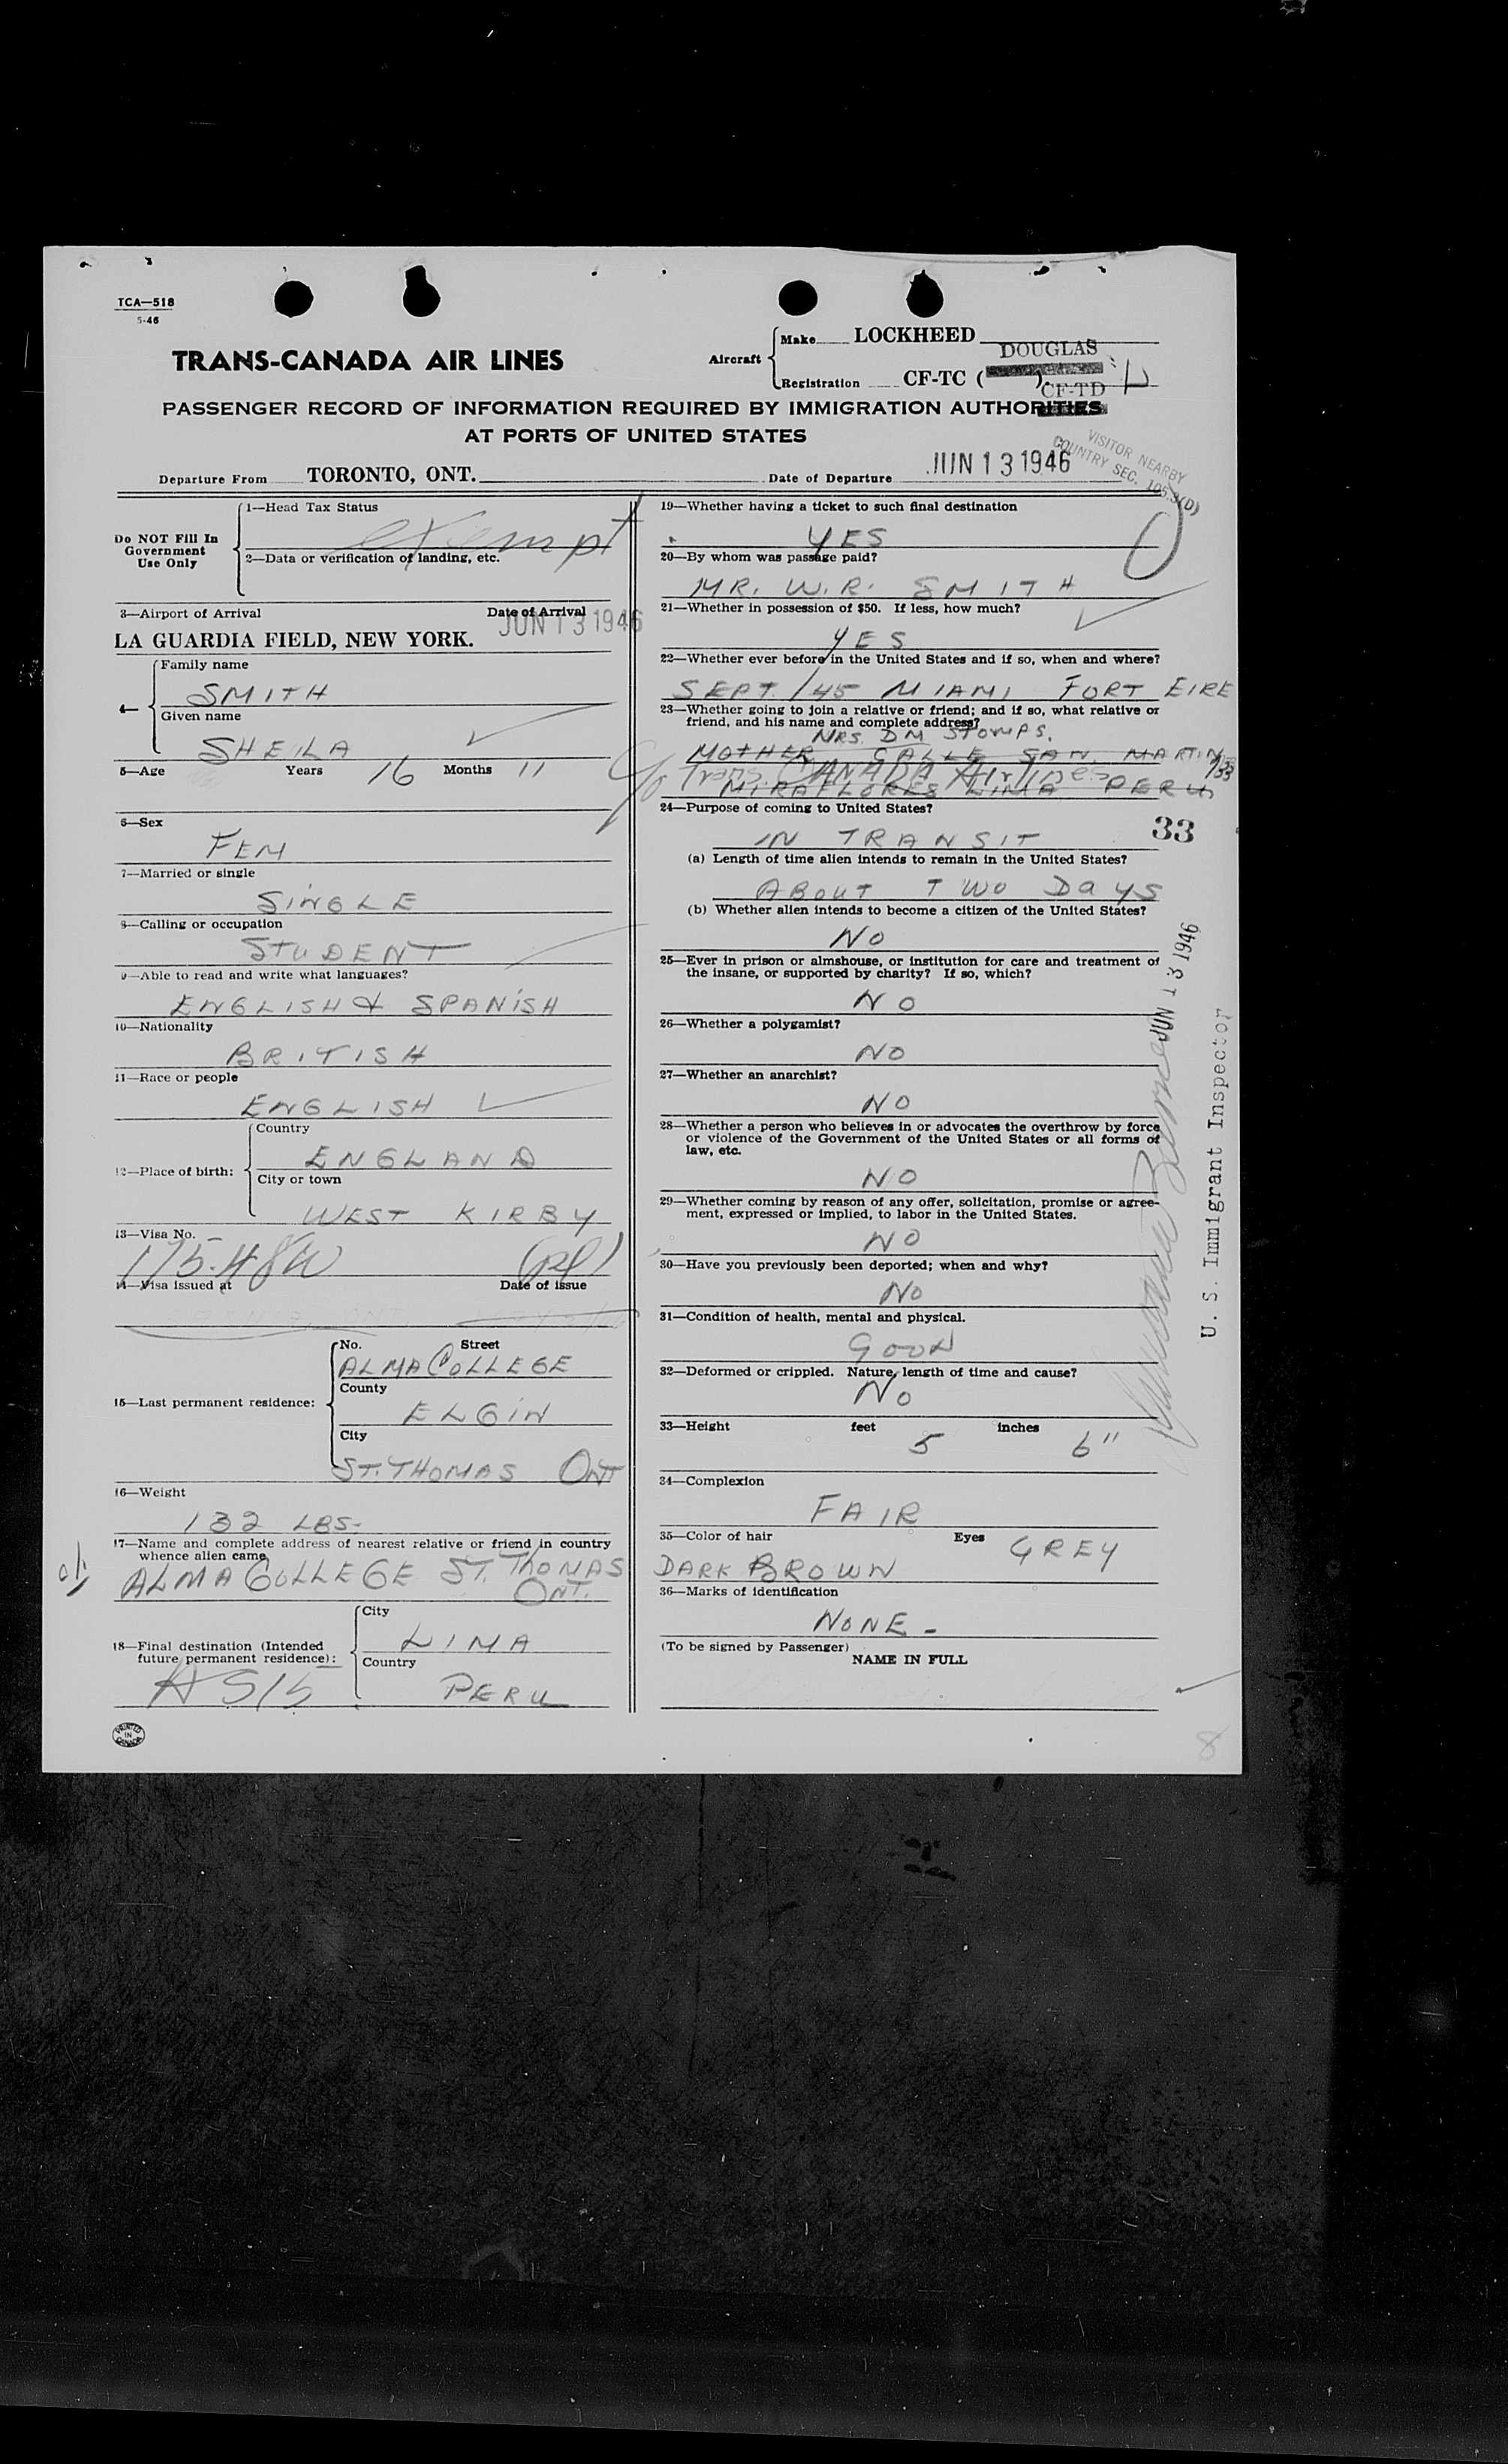 TCA—518
5-46
TRANS-CANADA AIR LINES
Aircraft
Make LOCKHEED
DOUGLAS
Registration CF-TC ( ).
CF-TD
PASSENGER RECORD OF INFORMATION REQUIRED BY IMMIGRATION AUTHORITIES
AT PORTS OF UNITED STATES
VISITOR NEARBY
COUNTRY SEC. 105.3(D)
Departure From TORONTO, ONT.
Date of Departure JUN 13 1946
Do NOT Fill In
Government
Use Only
1—Head Tax Status
exempt
2—Data or verification of landing, etc.
3—Airport of Arrival
Date of Arrival
LA GUARDIA FIELD, NEW YORK.
JUN 13 1946
4—
Family name
SMITH
Given name
SHEILA
5—Age Years 16 Months 11
6—Sex
FEM
7—Married or single
SINGLE
8—Calling or occupation
STUDENT
9—Able to read and write what languages?
ENGLISH & SPANISH
10—Nationality
BRITISH
11—Race or people
ENGLISH
12—Place of birth:
Country
ENGLAND
City or town
WEST KIRBY
13—Visa No.
14—Visa issued at
Date of issue
15—Last permanent residence:
No. Street
ALMA COLLEGE
County
ELGIN
City
ST. THOMAS ONT
16—Weight
132 LBS.
17—Name and complete address of nearest relative or friend in country
whence alien came.
ALMA COLLEGE ST. THOMAS
ONT.
18—Final destination (Intended
future permanent residence):
City
LIMA
Country
PERU
PRINTED
IN
CANADA
19—Whether having a ticket to such final destination
YES
20—By whom was passage paid?
MR. W.R. SMITH
21—Whether in possession of $50. If less, how much?
YES
22—Whether ever before in the United States and if so, when and where?
SEPT. /45 MIAMI FORT EIRE
23—Whether going to join a relative or friend; and if so, what relative or
friend, and his name and complete address?
MRS. DM STOMPS.
MOTHER CALLE SAN MARTIN
c/o Trans. CANADA Airlines
MIRAFLORES LIMA PERU
24—Purpose of coming to United States?
33
IN TRANSIT
(a) Length of time alien intends to remain in the United States?
ABOUT TWO DAYS
(b) Whether alien intends to become a citizen of the United States?
NO
25—Ever in prison or almshouse, or institution for care and treatment of
the insane, or supported by charity? If so, which?
NO
26—Whether a polygamist?
NO
27—Whether an anarchist?
NO
28—Whether a person who believes in or advocates the overthrow by force
or violence of the Government of the United States or all forms of
law, etc.
NO
29—Whether coming by reason of any offer, solicitation, promise or agree-
ment, expressed or implied, to labor in the United States.
NO
30—Have you previously been deported; when and why?
NO
31—Condition of health, mental and physical.
GOOD
32—Deformed or crippled. Nature, length of time and cause?
NO
33—Height feet 5 inches 6"
34—Complexion
FAIR
35—Color of hair Eyes GREY
DARK BROWN
36—Marks of identification
NONE -
(To be signed by Passenger)
NAME IN FULL
JUN 13 1946
U. S. Immigrant Inspector
8